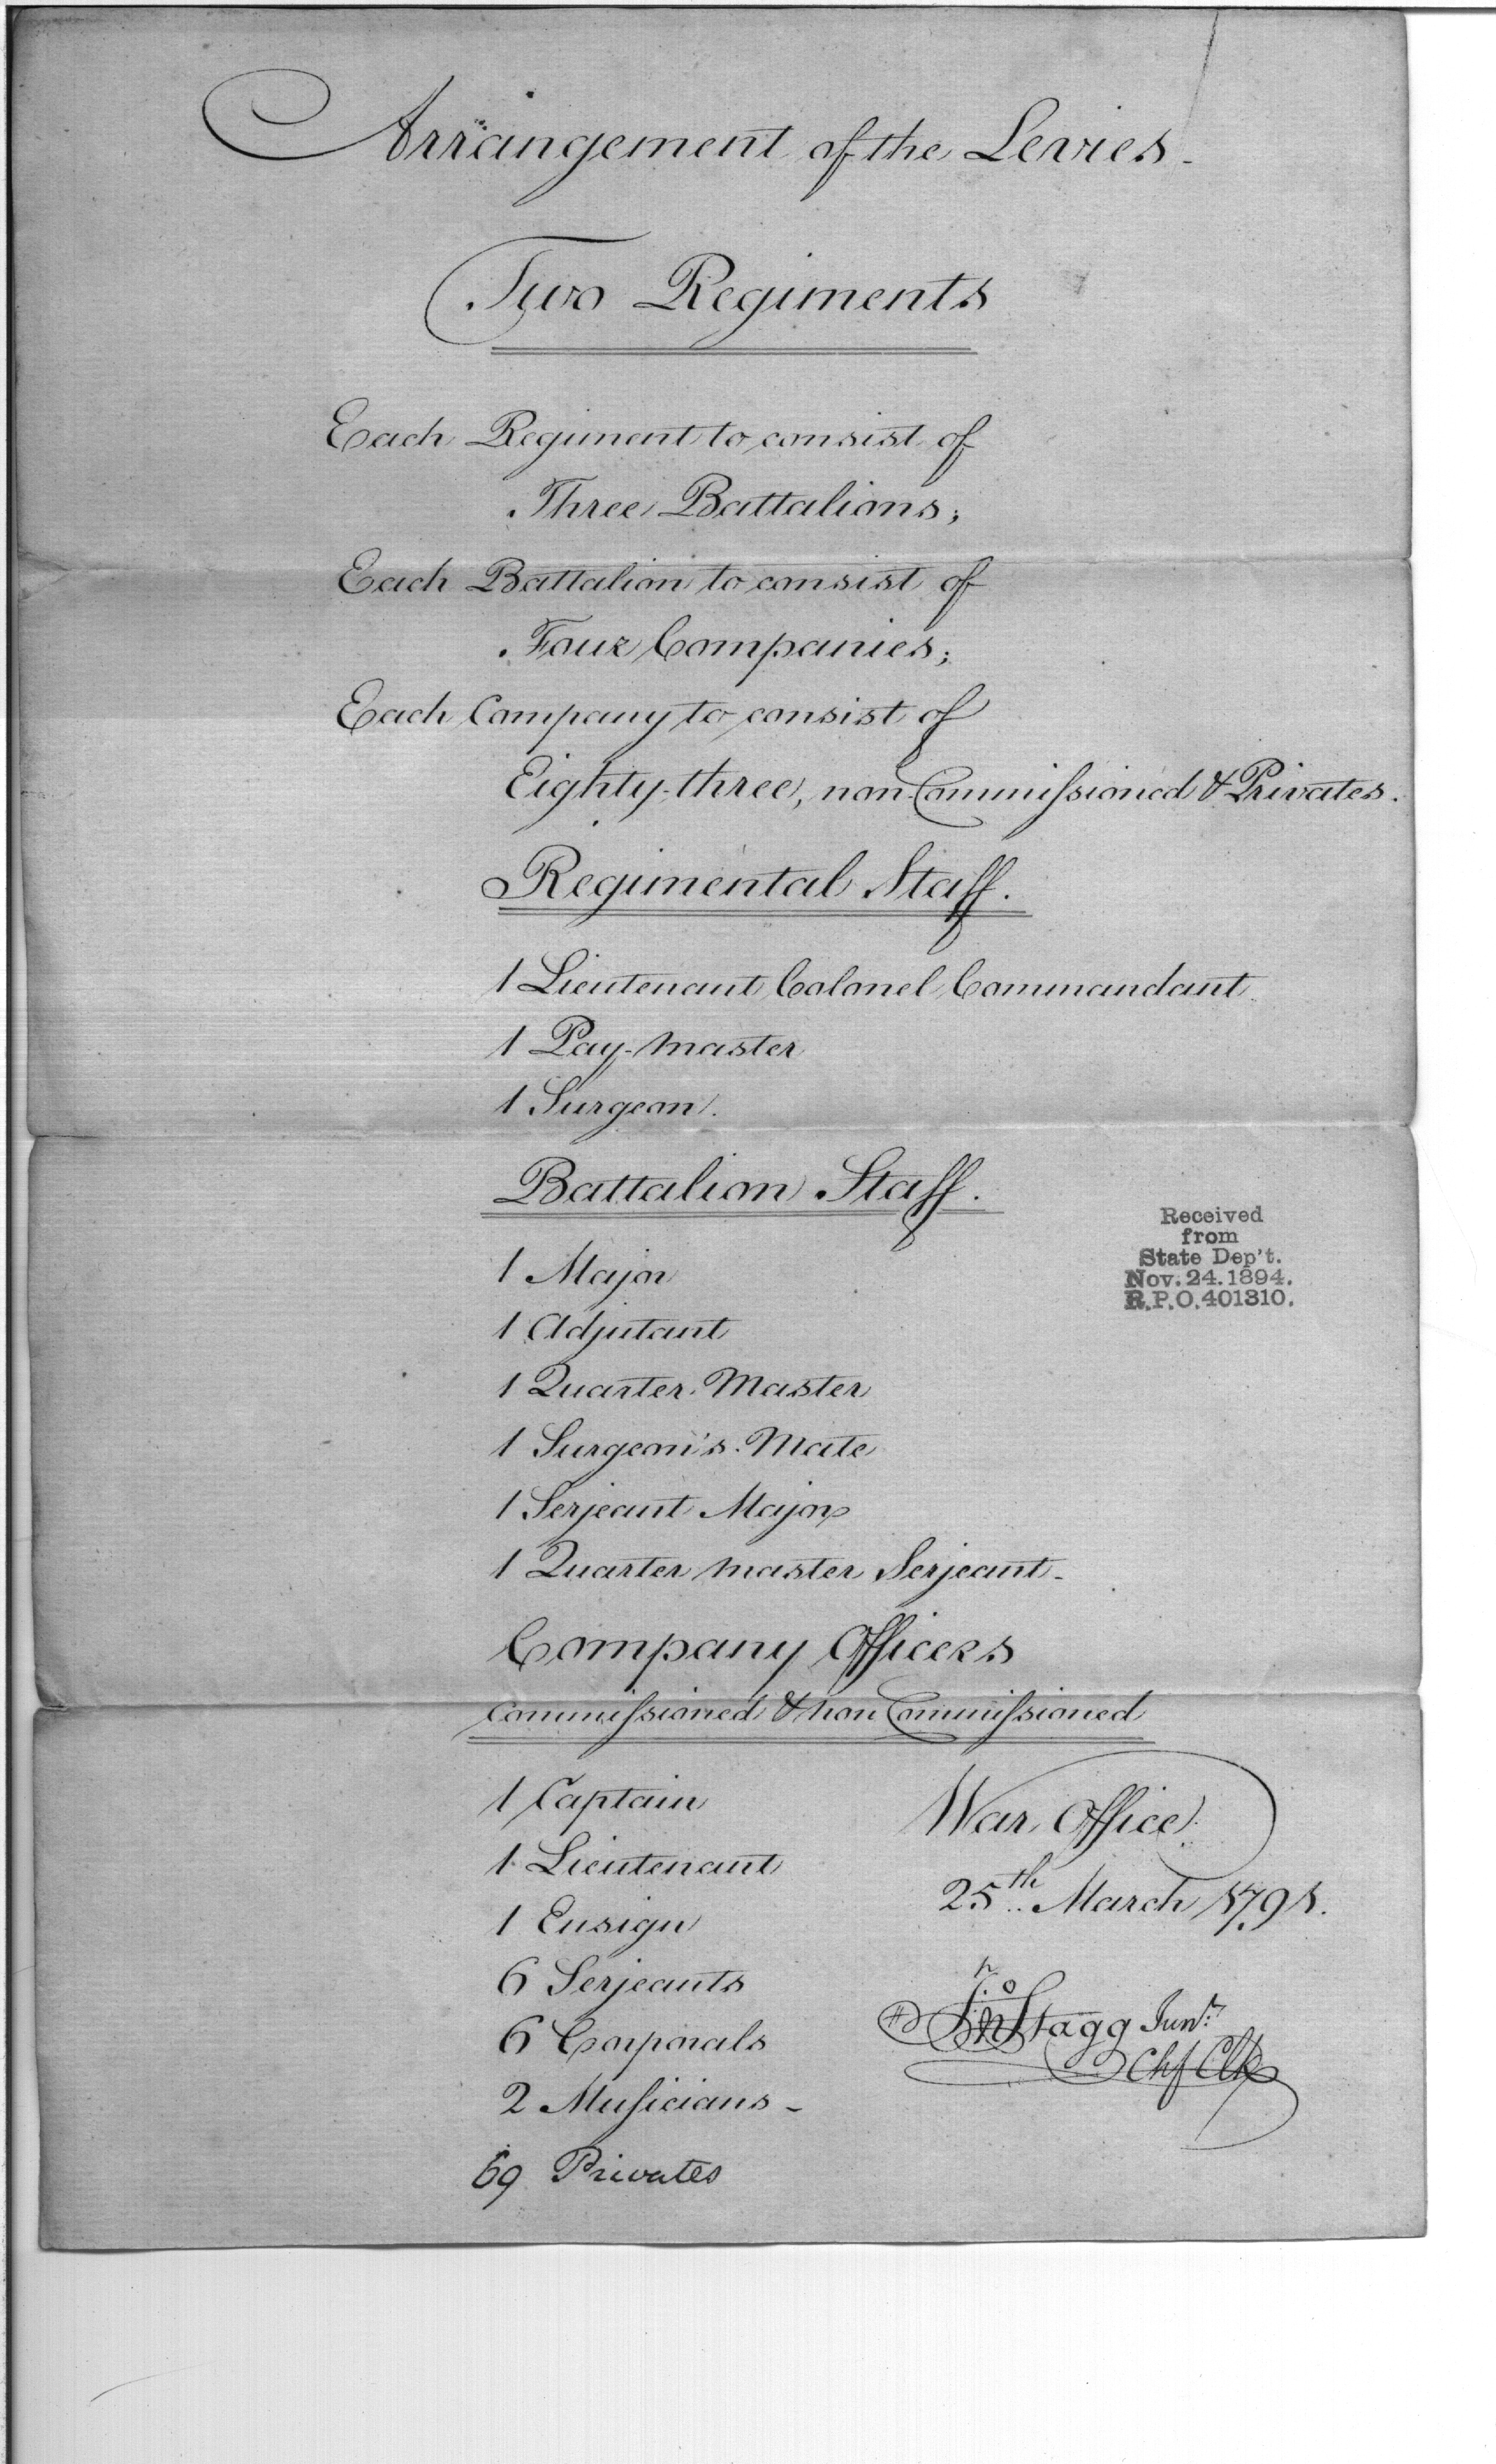 Arrangement of the Levies.
Two Regiments
Each Regiment to consist of
Three Battalions;
Each Battalion to consist of
Four Companies;
Each Company to consist of
Eighty-three, non-Commissioned & Privates.
Regimental Staff.
1 Lieutenant Colonel Commandant
1 Pay-Master
1 Surgeon.
Battalion Staff.
1 Major
1 Adjutant
1 Quarter Master
1 Surgeon's Mate
1 Serjeant Major
1 Quarter Master Serjeant-
Received
from
State Dep't.
Nov. 24. 1894.
R.P.O. 401310.
Company Officers
Commissioned & non Commissioned
1 Captain
1 Lieutenant
1 Ensign
6 Serjeants
6 Corporals
2 Musicians-
69 Privates
War Office
25th March 1791.
Jno Stagg Junr.
Chf Clk